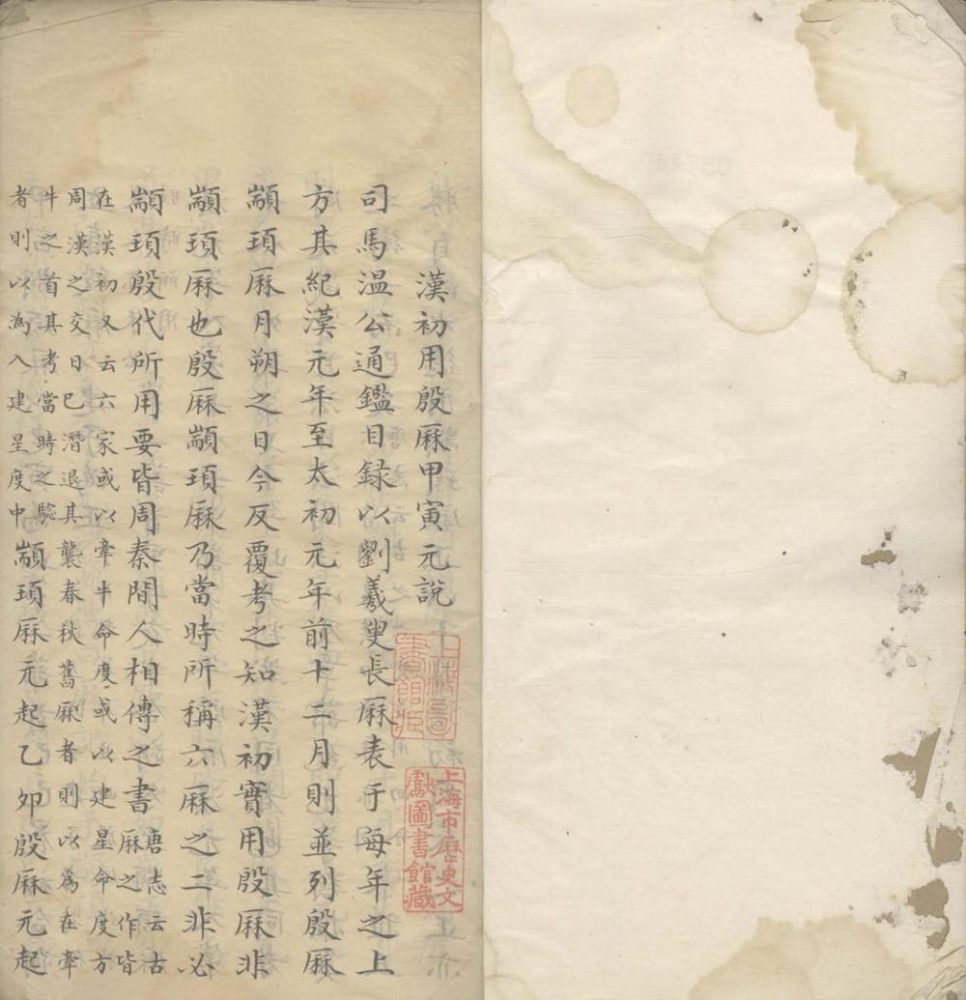 漢初用殷厤甲寅元說
司馬温公通鑑目録以劉羲叟長厤表于每年之上
方其紀漢元年至太初元年前十二月則並列殷厤
顓頊厤月朔之日今反覆考之知漢初實用殷厤非
顓頊厤也殷厤顓頊厤乃當時所稱六厤之二非必
顓頊殷代所用要皆周秦間人相傳之書
唐志云古
厤之作皆
在漢初又云六家或以牽牛命度或以建星命度方
周漢之交日已潛退其襲春秋舊厤者則以爲在牽
牛之首其考當時之驗
者則以為入建星度中
顓頊厤元起乙卯殷厤元起
上海市歷史文
獻圖書館藏